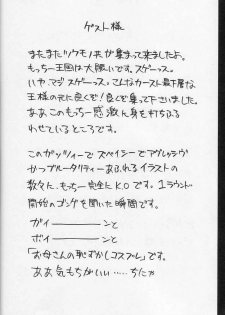 ゲスト様
またまたツウモノ共が集まって来ましたよ。
もっちー王国は大賑いです。スゲーっス。
いや、マジスゲーっス。こんなカースト最下層な
王様の元に良くぞ!良くぞ集って下さいました。
ああ このもっちー感激に身を打ちふる
わせているところです。
このガッツィーでスペイシーでアグレッシヴ
かつブルータリティーあふれるイラストの
数々に、もっちー完全にK.O.です。1ラウンド
開始のゴングを聞いた瞬間です。
ガイ――――ンと
ボイ――――ンと
「お母さんの恥ずかしコスプレ」です。
ああ気もちがいい……